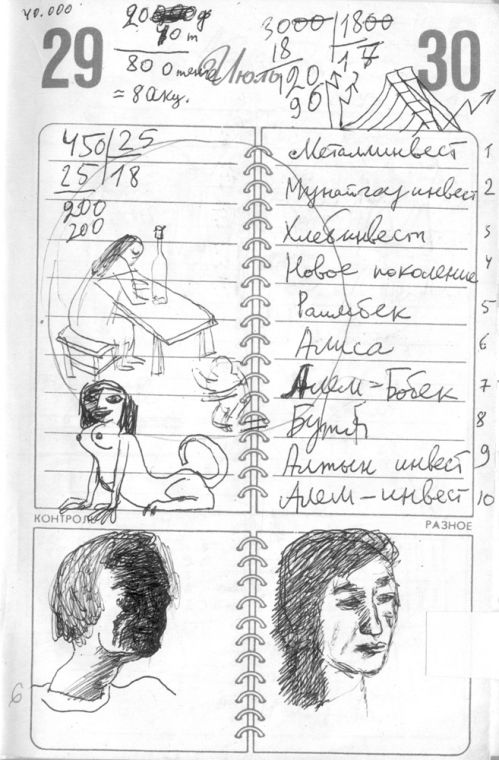 40.000
29
Июль
30
3000 | 1800
18
17
120
96
800 тенге
= 8 акц.
450 | 25
25 | 18
200
200
Металлинвест 1
Мунайгаз инвест 2
Хлебинвест 3
Новое поколение 4
Раимбек 5
Алиса 6
Алем-Бобек 7
8
Алтын инвест 9
Алем-инвест 10
КОНТРОЛЬ
РАЗНОЕ
6